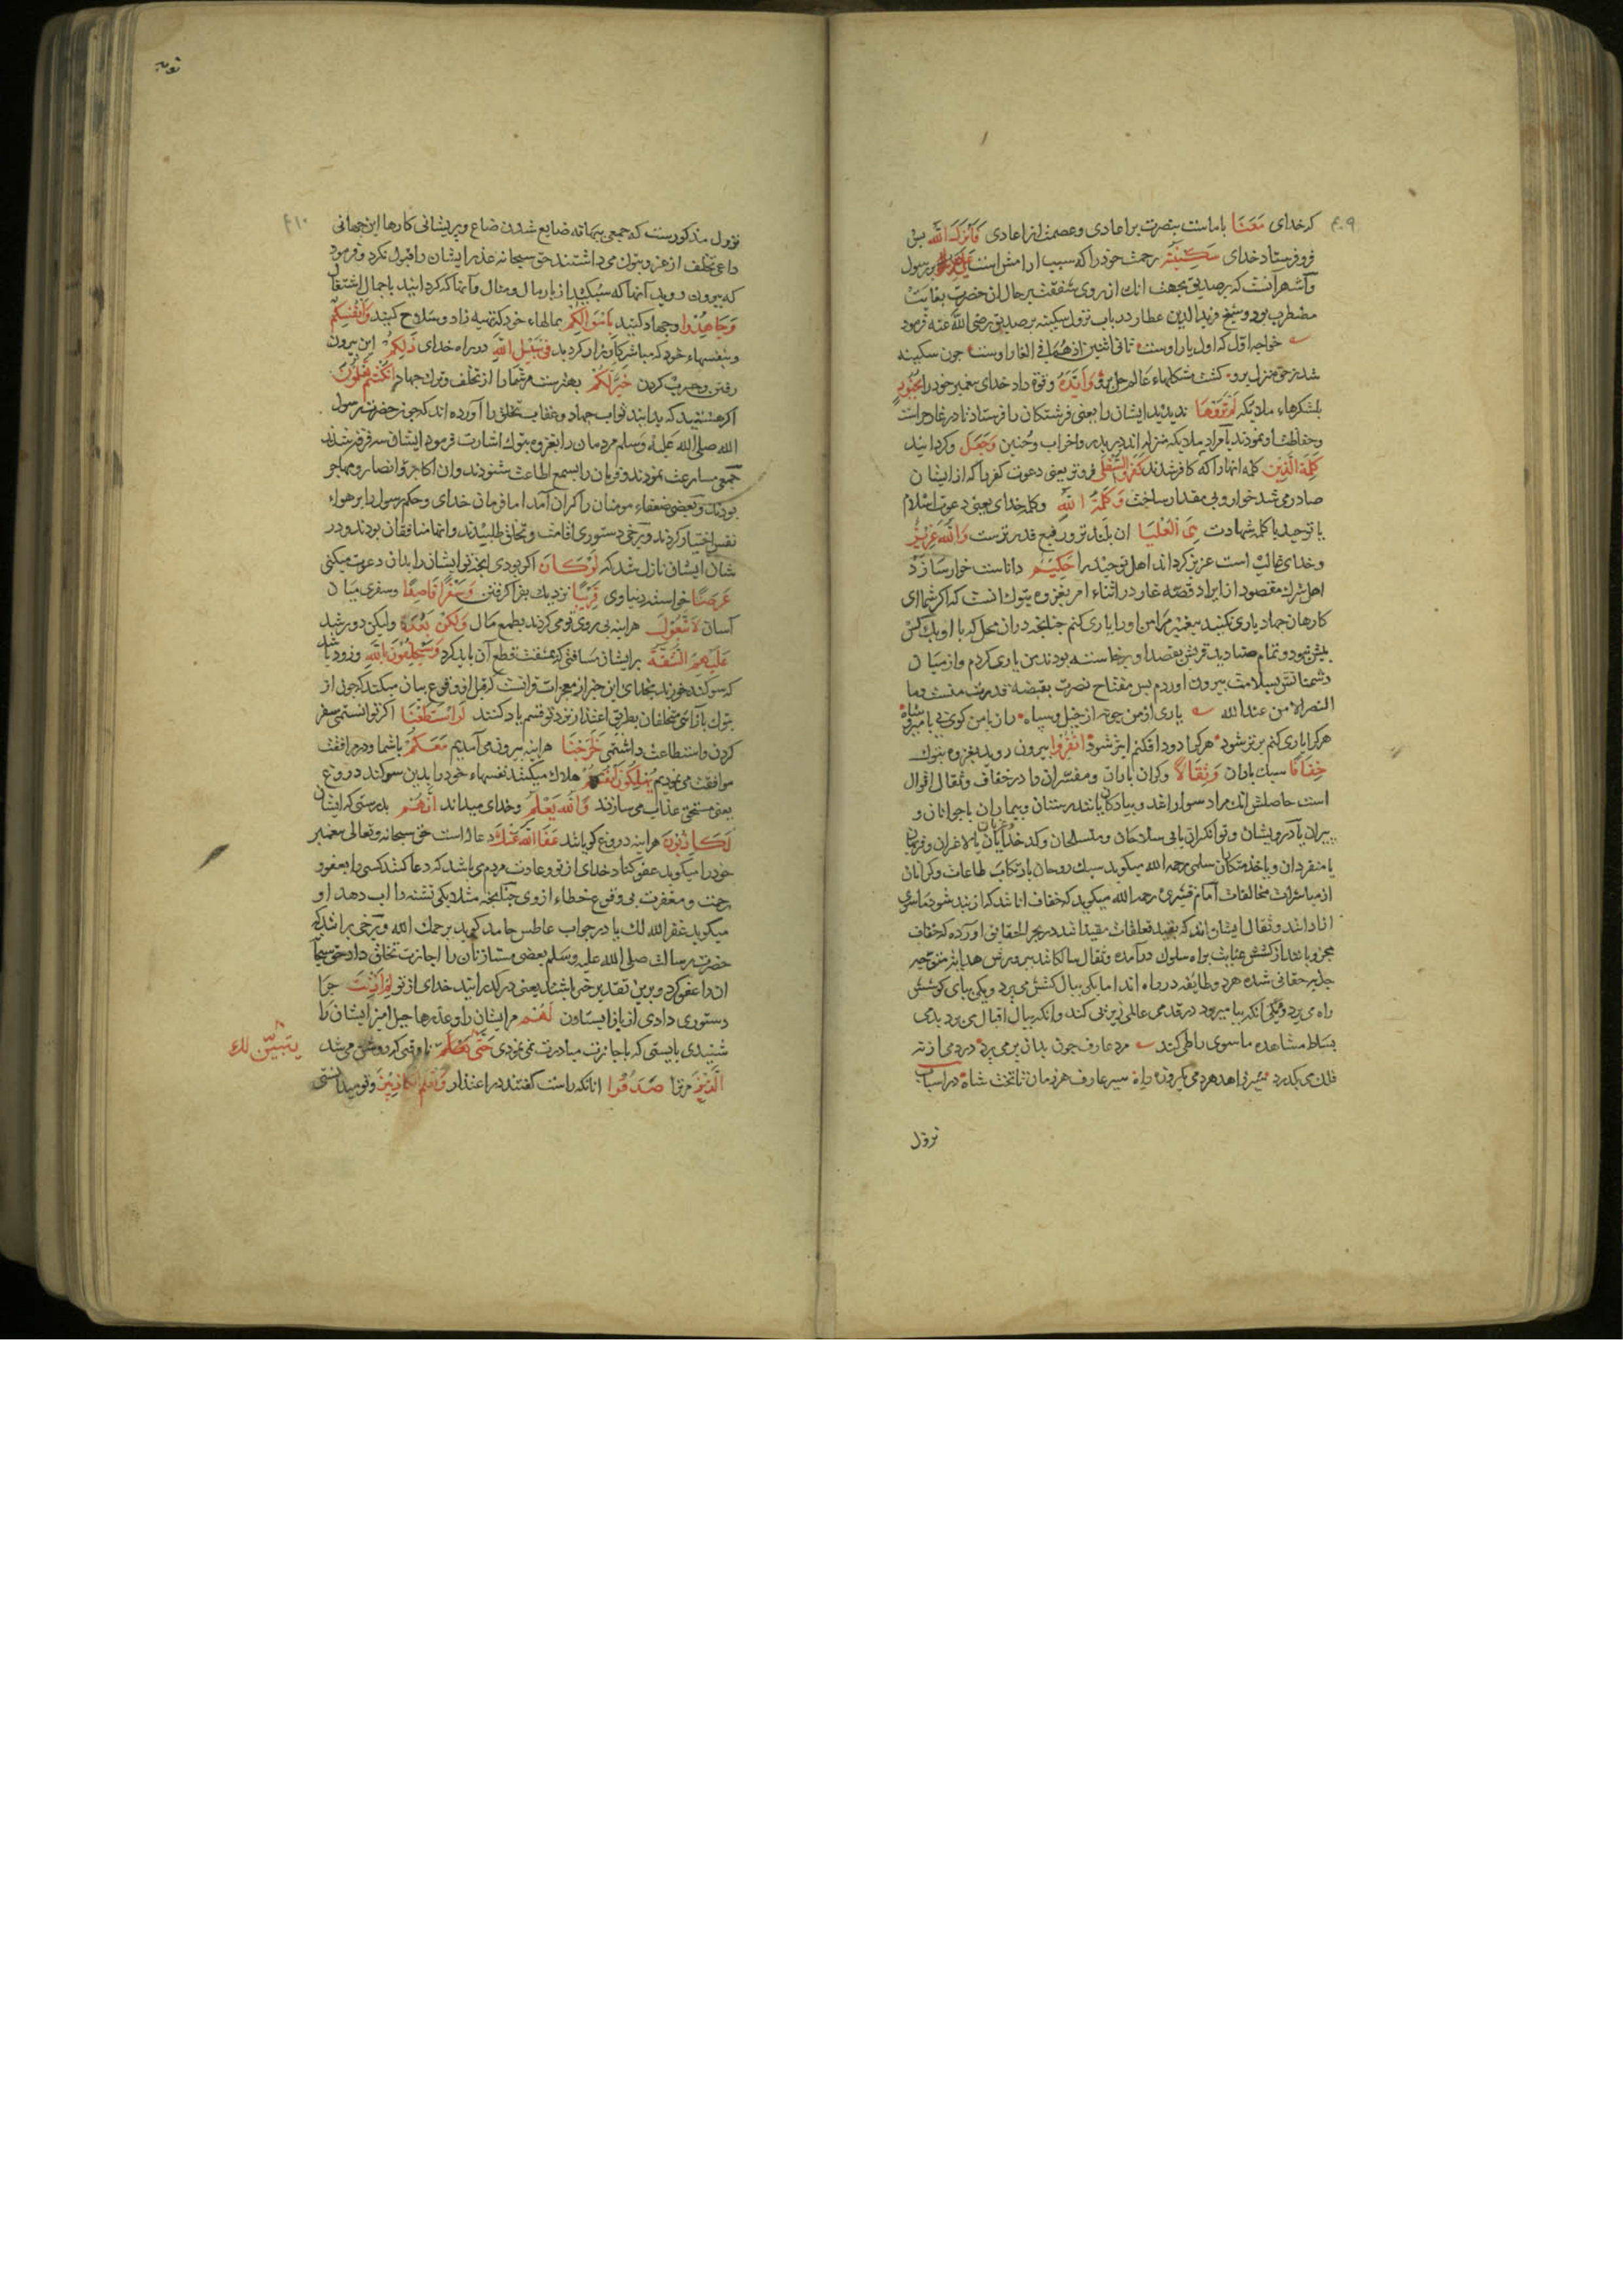 ۴۰۹
که خدای مَعَنَا باماست بنصرت بر اعادی و عصمت از اعادی فَأَنزَلَ اللَّه پس
فرو فرستاد خدای سَكِينَتَه رحمت خود را که سبب ارامش است عَلَيْهِ بر رسول
و آشهر آنست که بر صدیق بجهت انك از روی شفقت بر حال ان حضرت بغایت
مضطرب بود و شیخ فرید الدین عطار در باب نزول سکینه بر صدیق رضی الله عنه فرمود
خواجه اول که اول یار اوست ثانی اثنین اذ هما فی الغار اوست چون سکینه
شد ز حق منزل برو گشت مشکلهاء عالم حل برو وَأَيَّدَهُ و قوة داد خدای پیغمبر خود را بِجُنُودٍ
بلشکرهاء ملایکه لَمْ تَرَوْهَا ندیدید ایشان را یعنی فرشتکان را فرستاد تا در غار حراست
و حفاظت او نمودند یا مراد ملایکه منزل اند در بدر و احزاب و حنین وَجَعَلَ و کردانید
كَلِمَةَ الَّذِينَ کلمه انها را که کافر شدند كَفَرُوا السُّفْلَى فروتر یعنی دعوت کفر را که از ایشان
صادر می شد خوار و بی مقدار ساخت وَكَلِمَةُ اللَّهِ و کلمه خدای یعنی دعوت اسلام
یا توحید یا کلمه شهادت هِيَ الْعُلْيَا ان بلند تر و رفیع قدر ترست وَاللَّهُ عَزِيزٌ
و خدای غالب است عزیز کرداند اهل توحید را حَكِيمٌ داناست خوار سازد
اهل شرك مقصود از ایراد قصه غار در اثناء امر بغزوه تبوك انست که اکر شما ای
کارهان جهاد یاری نکنید پیغمبر مرا من او را یاری کنم چنانچه دران محل که با او یك کس
بیش نبود و تمام صنادید قریش بقصد او برخاسته بودند من یاری کردم و از میان
دشمنانش بسلامت بیرون اوردم پس مفتاح نصرت بقبضه قدرت منست وما
النصر الا من عند الله یاری از من جو نه از خیل و سپاه
هر کرا یاری کنم برتر شود هر کرا دور افکنم ابتر شود انْفِرُوا بیرون روید بغزوه تبوك
خِفَافًا سبك باران وَثِقَالًا و کران باران و مفسران را در خفاف و ثقال اقوال
است حاصلش انك مراد سواراند و پیادکان یا تندرستان و بیماران یا جوانان و
پیران یا درویشان و توانکران یا بی سلاحان و مسلحان
یا منفردان و یا خدمتکان سلمی رحمه الله میکوید سبك روحان بارتکاب طاعات و کرانان
از مباشرات مخالفات امام قشیری رحمه الله میکوید که خفاف اناند که از بند شود ماسوی
ازادانند و ثقال ایشان اند که بقید تعلقات مقید اند در بحر الحقایق اورده که خفاف
مجذوبانند از کشش عنایت براه سلوك درآمده و ثقال سالکانند بپرورش هدایت متوجه
جذبه حقانی شده هر دو طایفه در راه اند اما یکی ببال کشش می پرد و یکی بپای کوشش
راه می برد و یکی انکه بپا میرود در قدمی عالمی زیر پی کند وانکه ببال اقبال می برد بدمی
بساط مشاهده ماسوی را طی کند مرد عارف چون بدان پر می پرد در دمی از نه
فلك می بکذرد سیر زاهد هر دمی یکروزه راه سیر عارف هر زمان تا تخت شاه در اسباب
نزول
توبه
۴۱۰
نزول مذکورست که جمعی ببهانه ضایع شدن ضیاع و پریشانی کارها این جهانی
داعی تخلف از غزو تبوك می داشتند حق سبحانه عذر ایشان را قبول نکرد و فرمود
که بیرون روید آنها که سبکبارند از بار مال و منال و آنها که کرانید باحمال اشتغال
وَجَاهِدُوا و جهاد کنید بِأَمْوَالِكُمْ بمالهاء خود که تهیه زاد و سلاح کنید وَأَنْفُسِكُمْ
و بنفسهاء خود که مباشر کارزار کردید فِي سَبِيلِ اللَّهِ در راه خدای ذَلِكُمْ این بیرون
رفتن و حرب کردن خَيْرٌ لَكُمْ بهترست مر شما را از تخلف و ترك جهاد إِنْ كُنْتُمْ تَعْلَمُونَ
اکر هستید که بدانید ثواب جهاد و عقاب تخلف را آورده اند که چون حضرت رسول
الله صلی الله علیه وسلم مردمان را بغزو تبوك اشارت فرمود ایشان سه فرقه شدند
جمعی مسارعت نمودند و فرمان را بسمع اطاعت شنودند و ان اکابر و انصار و مهاجر
بودند و بعضی ضعفاء مومنان را کران آمد اما فرمان خدای و حکم رسول را بر هواء
نفس اختیار کردند و برخی دستوری اقامت و تخلف طلبیدند و انها منافقان بودند و در
شان ایشان نازل شد که لَوْ كَانَ اکر بودی انچه تو ایشان را بدان دعوت میکنی
عَرَضًا خواسته دنیاوی قَرِيبًا نزدیك بفرا کرفتن وَسَفَرًا قَاصِدًا و سفری میان
آسان لَاتَّبَعُوكَ هراینه پی روی تو می کردند بطمع مال وَلَكِنْ بَعُدَتْ ولیکن دور شد
عَلَيْهِمُ الشُّقَّةُ بر ایشان مسافتی که بمشقت قطع آن باید کرد وَسَيَحْلِفُونَ بِاللَّهِ و زود باشد
که سوکند خورند بخدای این خبر از معجزات قرانست که قبل از وقوع بیان میکند که چون از
تبوك بازآئی متخلفان بطریق اعتذار نزد تو قسم یاد کنند لَوِ اسْتَطَعْنَا اکر توانستمی سفر
کردن و استطاعت داشتمی لَخَرَجْنَا هراینه بیرون می آمدیم مَعَكُمْ باشما و در مرافقت
موافقت می نمودیم يُهْلِكُونَ أَنْفُسَهُمْ هلاك میکنند نفسهاء خود را بدین سوکند دروغ
یعنی مستحق عذاب می سازند وَاللَّهُ يَعْلَمُ و خدای میداند إِنَّهُمْ بدرستی که ایشان
لَكَاذِبُونَ هراینه دروغ کویانند عَفَا اللَّهُ عَنْكَ دعا است حق سبحانه و تعالی پیغمبر
خود را میکوید عفو کناد خدای از تو و عادت مردم می باشد که دعا کنند کسی را بعفو و
رحمت و مغفرت بی وقوع خطاء از وی چنانچه مثلا یکی تشنه را اب دهد او
میکوید غفر الله لك یا در جواب عاطس حامد کوید یرحمك الله و برخی برانند که
حضرت رسالت صلی الله علیه وسلم بعضی مستاذنان را اجازت تخلف داد حق سبحانه
ان را عفو کرد و برین تقدیر خبر باشد یعنی درکذرانید خدای از تو لِمَ أَذِنْتَ چرا
دستوری دادی از باز ایستادن لَهُمْ مر ایشان را و عذرها حیل امیز ایشان را
شنیدی بایستی که باجازت مبادرت نمی نمودی حَتَّى تا وقتی که روشن می شد
يتبيّن لك
الَّذِينَ مر ترا صَدَقُوا انانکه راست کفتند در اعتذار وَتَعْلَمَ الْكَاذِبِينَ و تو میدانستی